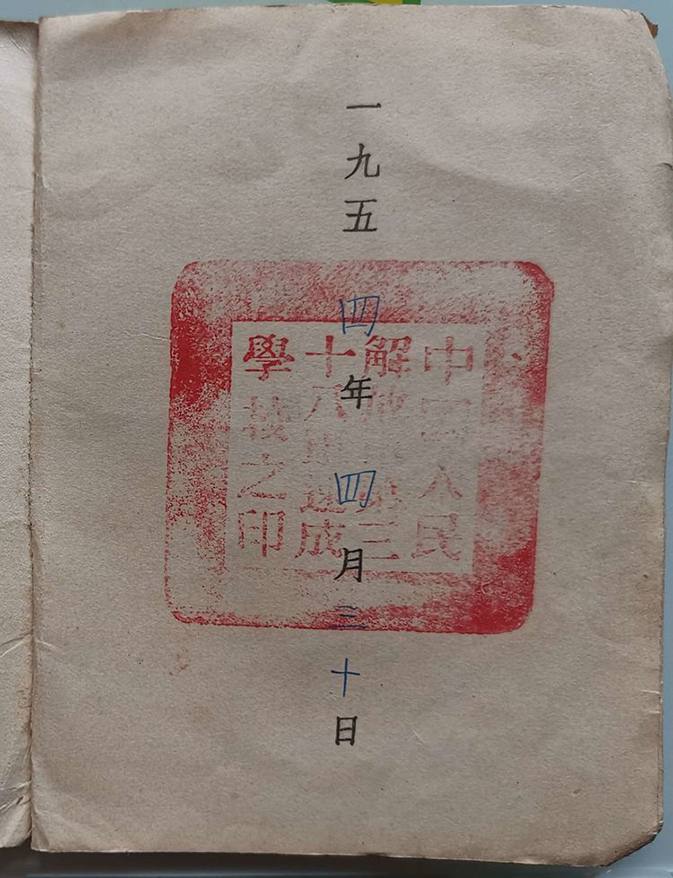 一九五四年四月三十日
中國人民
解放軍第三
十八速成
學校之印